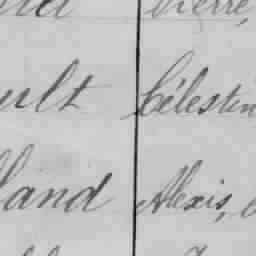 Pierre,
ult Célestin
land Alexis,